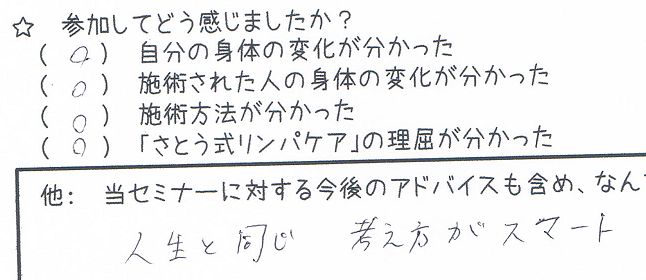 ☆ 参加してどう感じましたか？
（ ○ ） 自分の身体の変化が分かった
（ ○ ） 施術された人の身体の変化が分かった
（ ○ ） 施術方法が分かった
（ ○ ） 「さとう式リンパケア」の理屈が分かった
他： 当セミナーに対する今後のアドバイスも含め、なん
人生と同じ 考え方がスマート